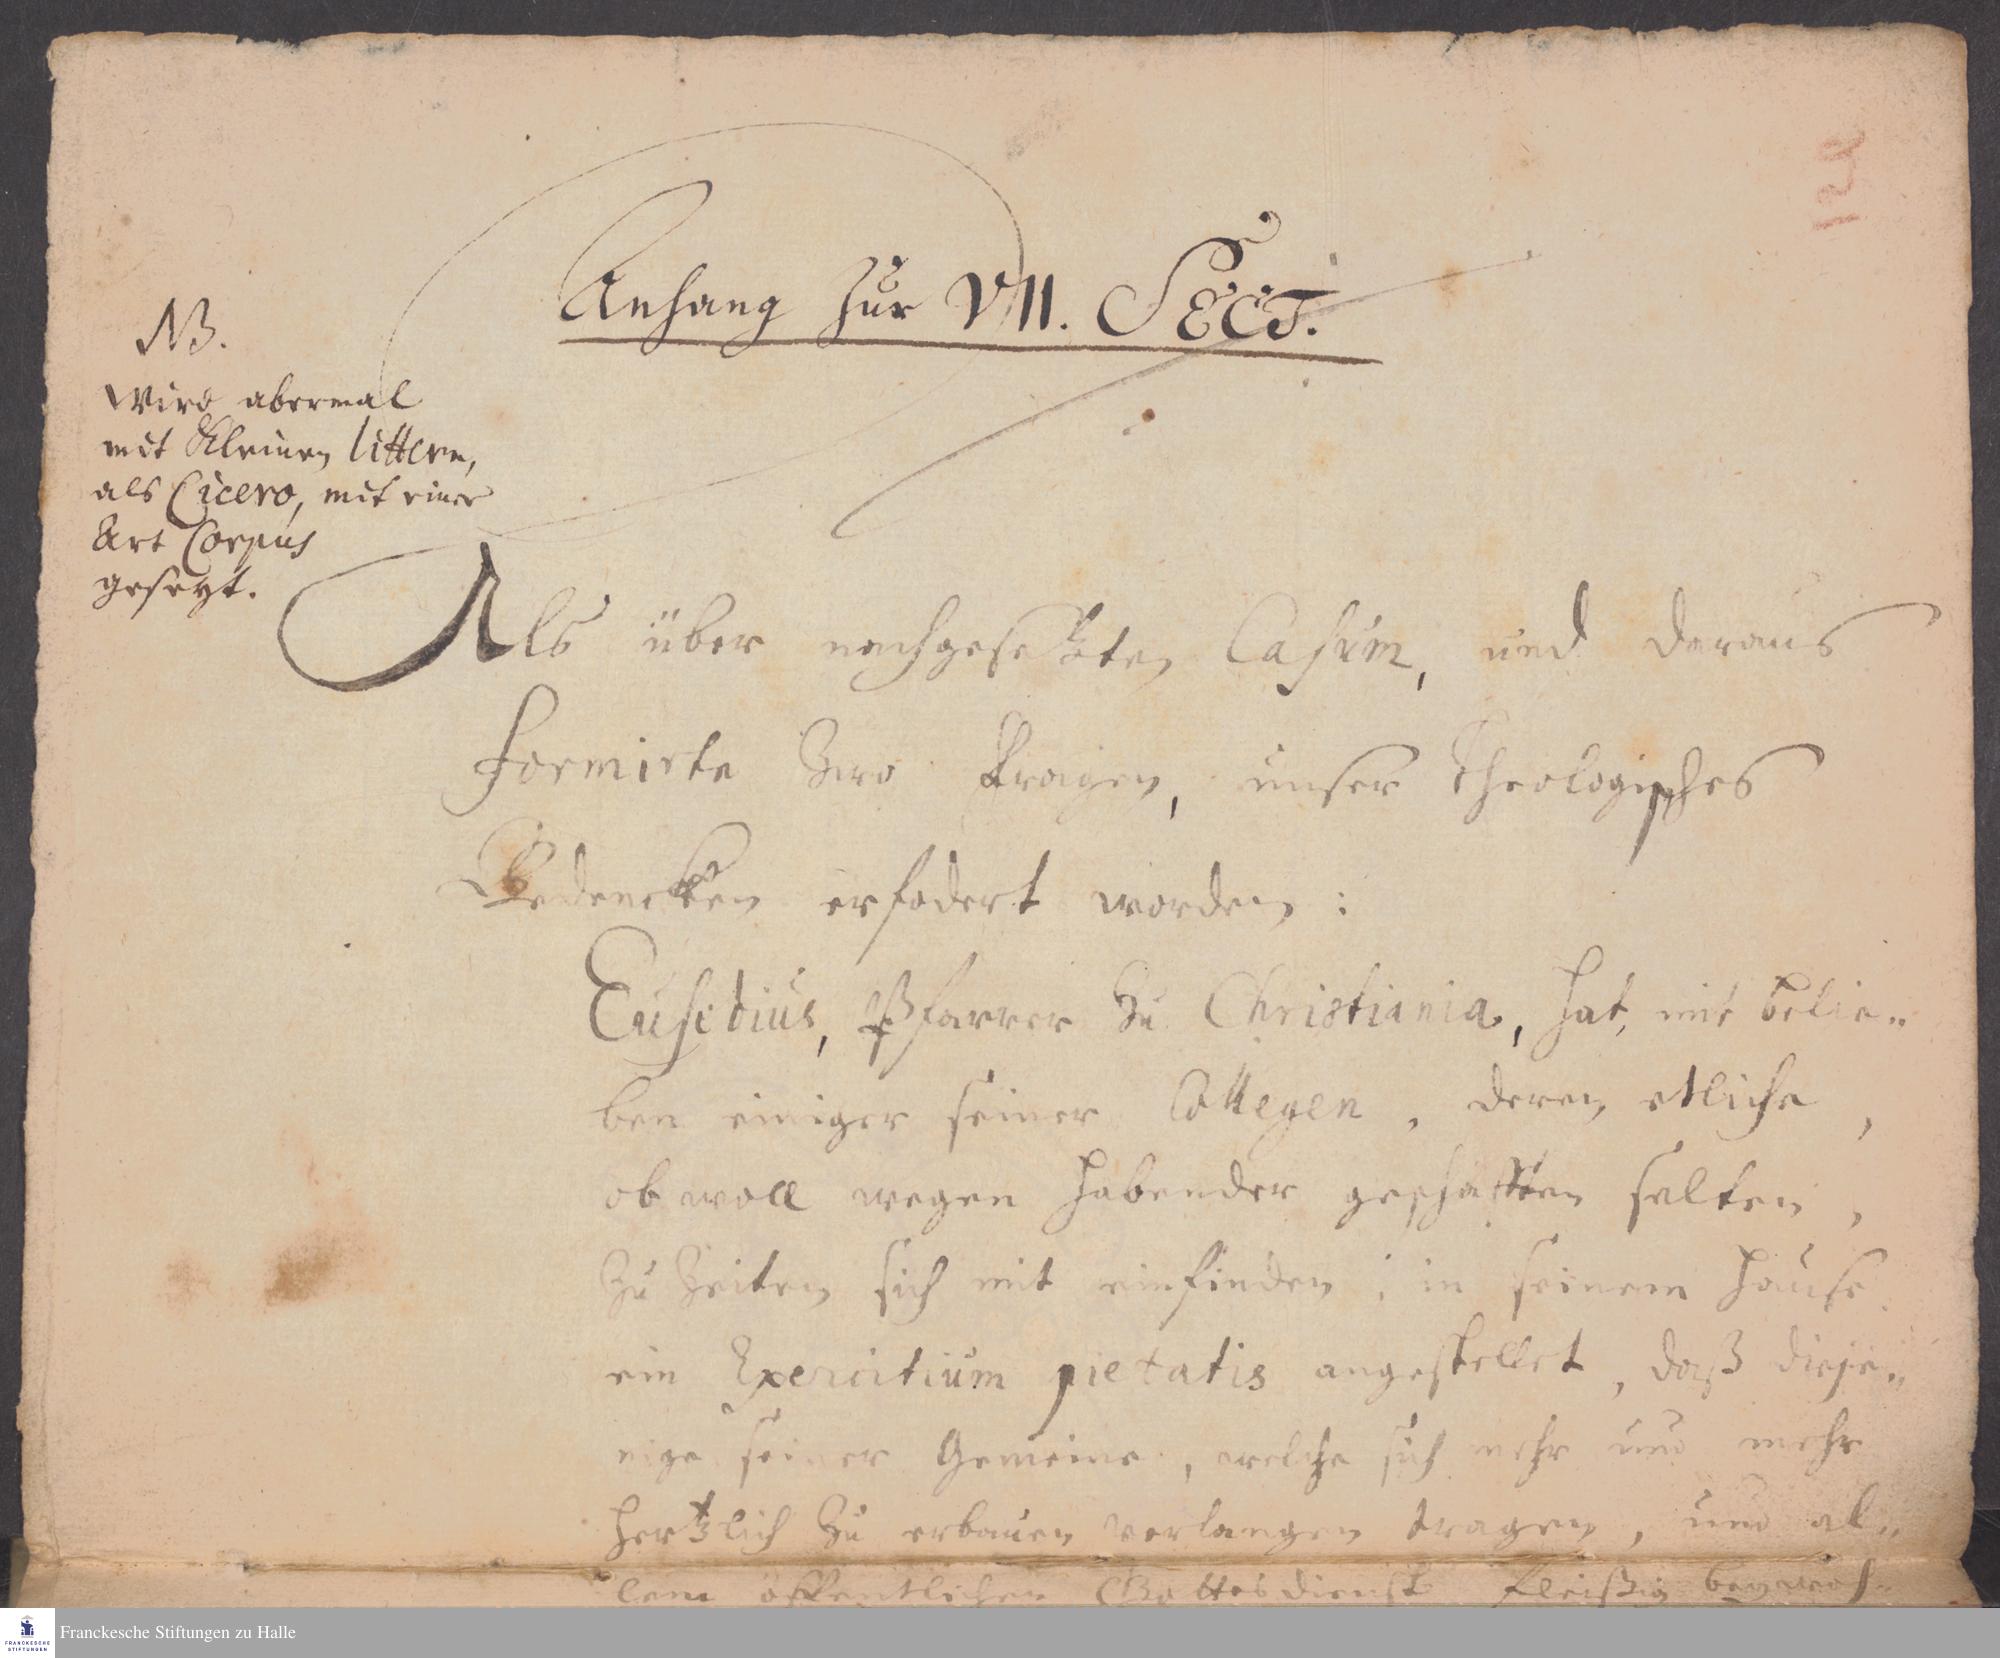 129
Anhang zur VII. SECT.
NB.
Wird abermal
mit Kleinen littern,
als Cicero, mit einer
Art Corpus
gesetzt.
Als über nachgesetzten Casum, und daraus
formirte zwo Fragen, unser Theologisches
Bedencken erfodert worden:
Eusebius, Pfarrer zu Christiania, hat, mit belie-
ben einiger seiner Collegen, deren etliche,
ob woll wegen habender geschäfften selten,
zu Zeiten sich mit einfinden; in seinem Hause
ein Exercitium pietatis angestellet, daß dieje-
nige seiner Gemeine, welche sich mehr und mehr
hertzlich zu erbauen verlangen tragen, und al-
lem öffentlichen Gottesdienst fleißig beywoh-
Franckesche Stiftungen zu Halle
FRANCKESCHE
STIFTUNGEN